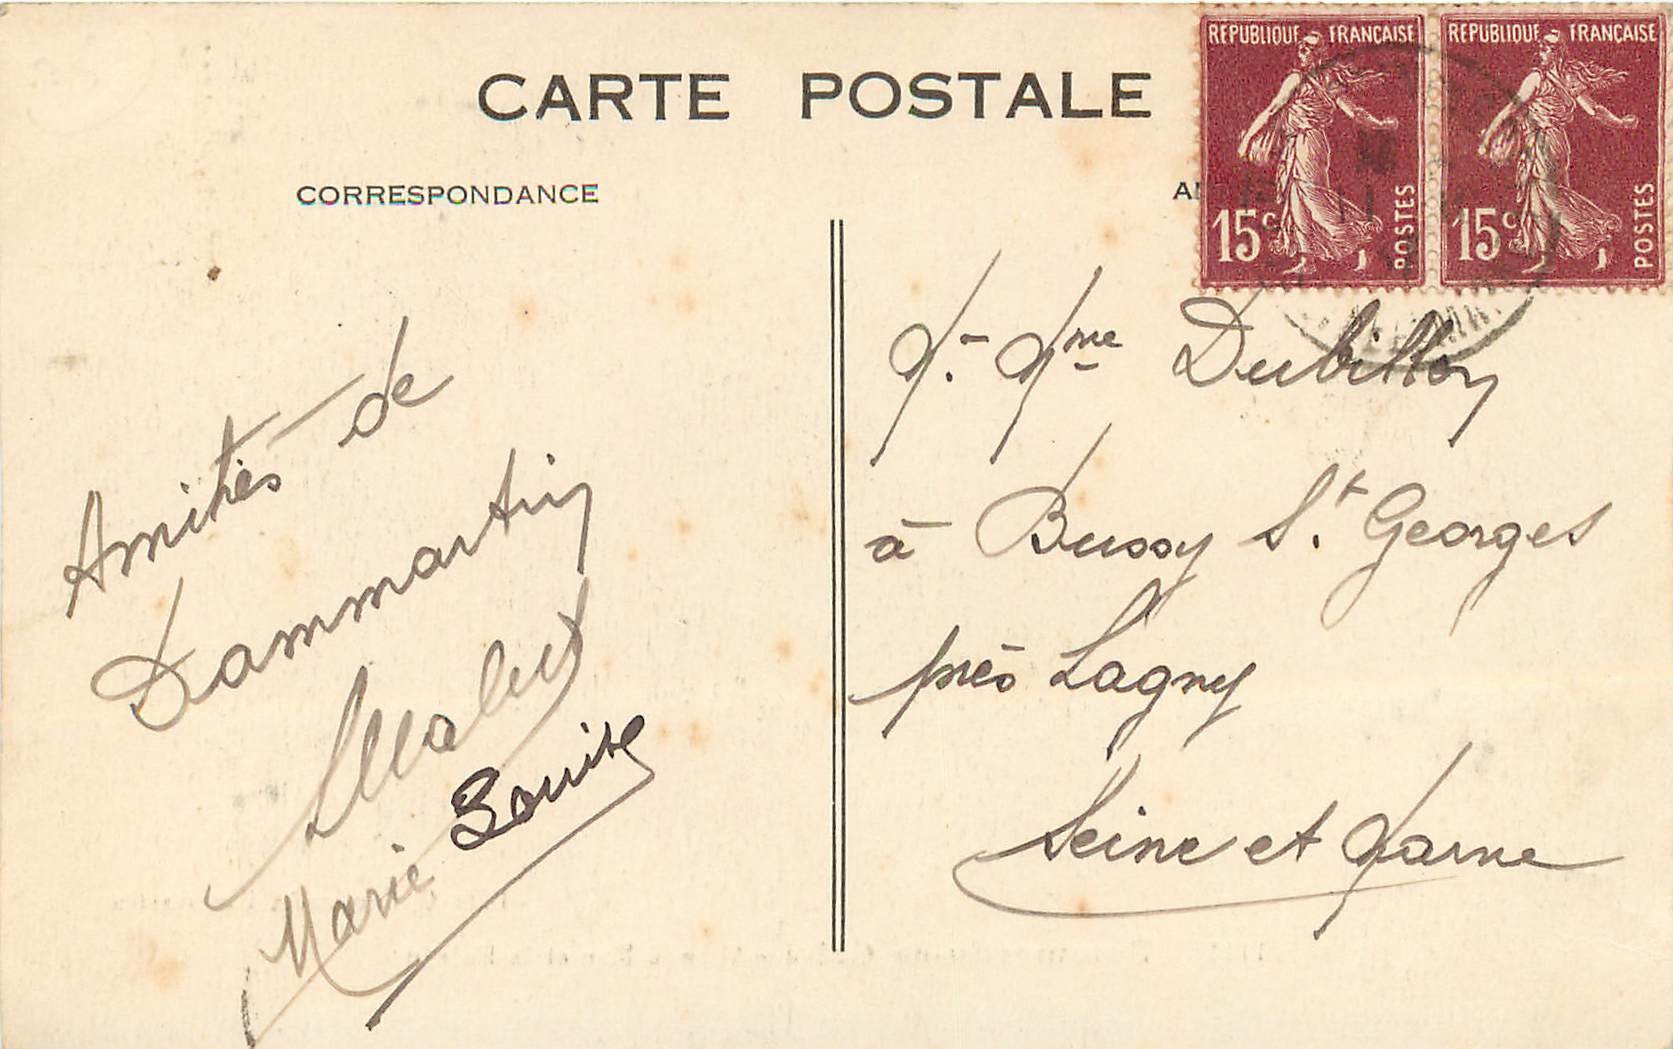 CARTE POSTALE
CORRESPONDANCE
REPUBLIQUE FRANÇAISE
15c POSTES
REPUBLIQUE FRANÇAISE
15c POSTES
Amitiés de
Dammartin
Marie Louise
M. Mme Dubillon
à Bussy St. Georges
près Lagny
Seine et Marne